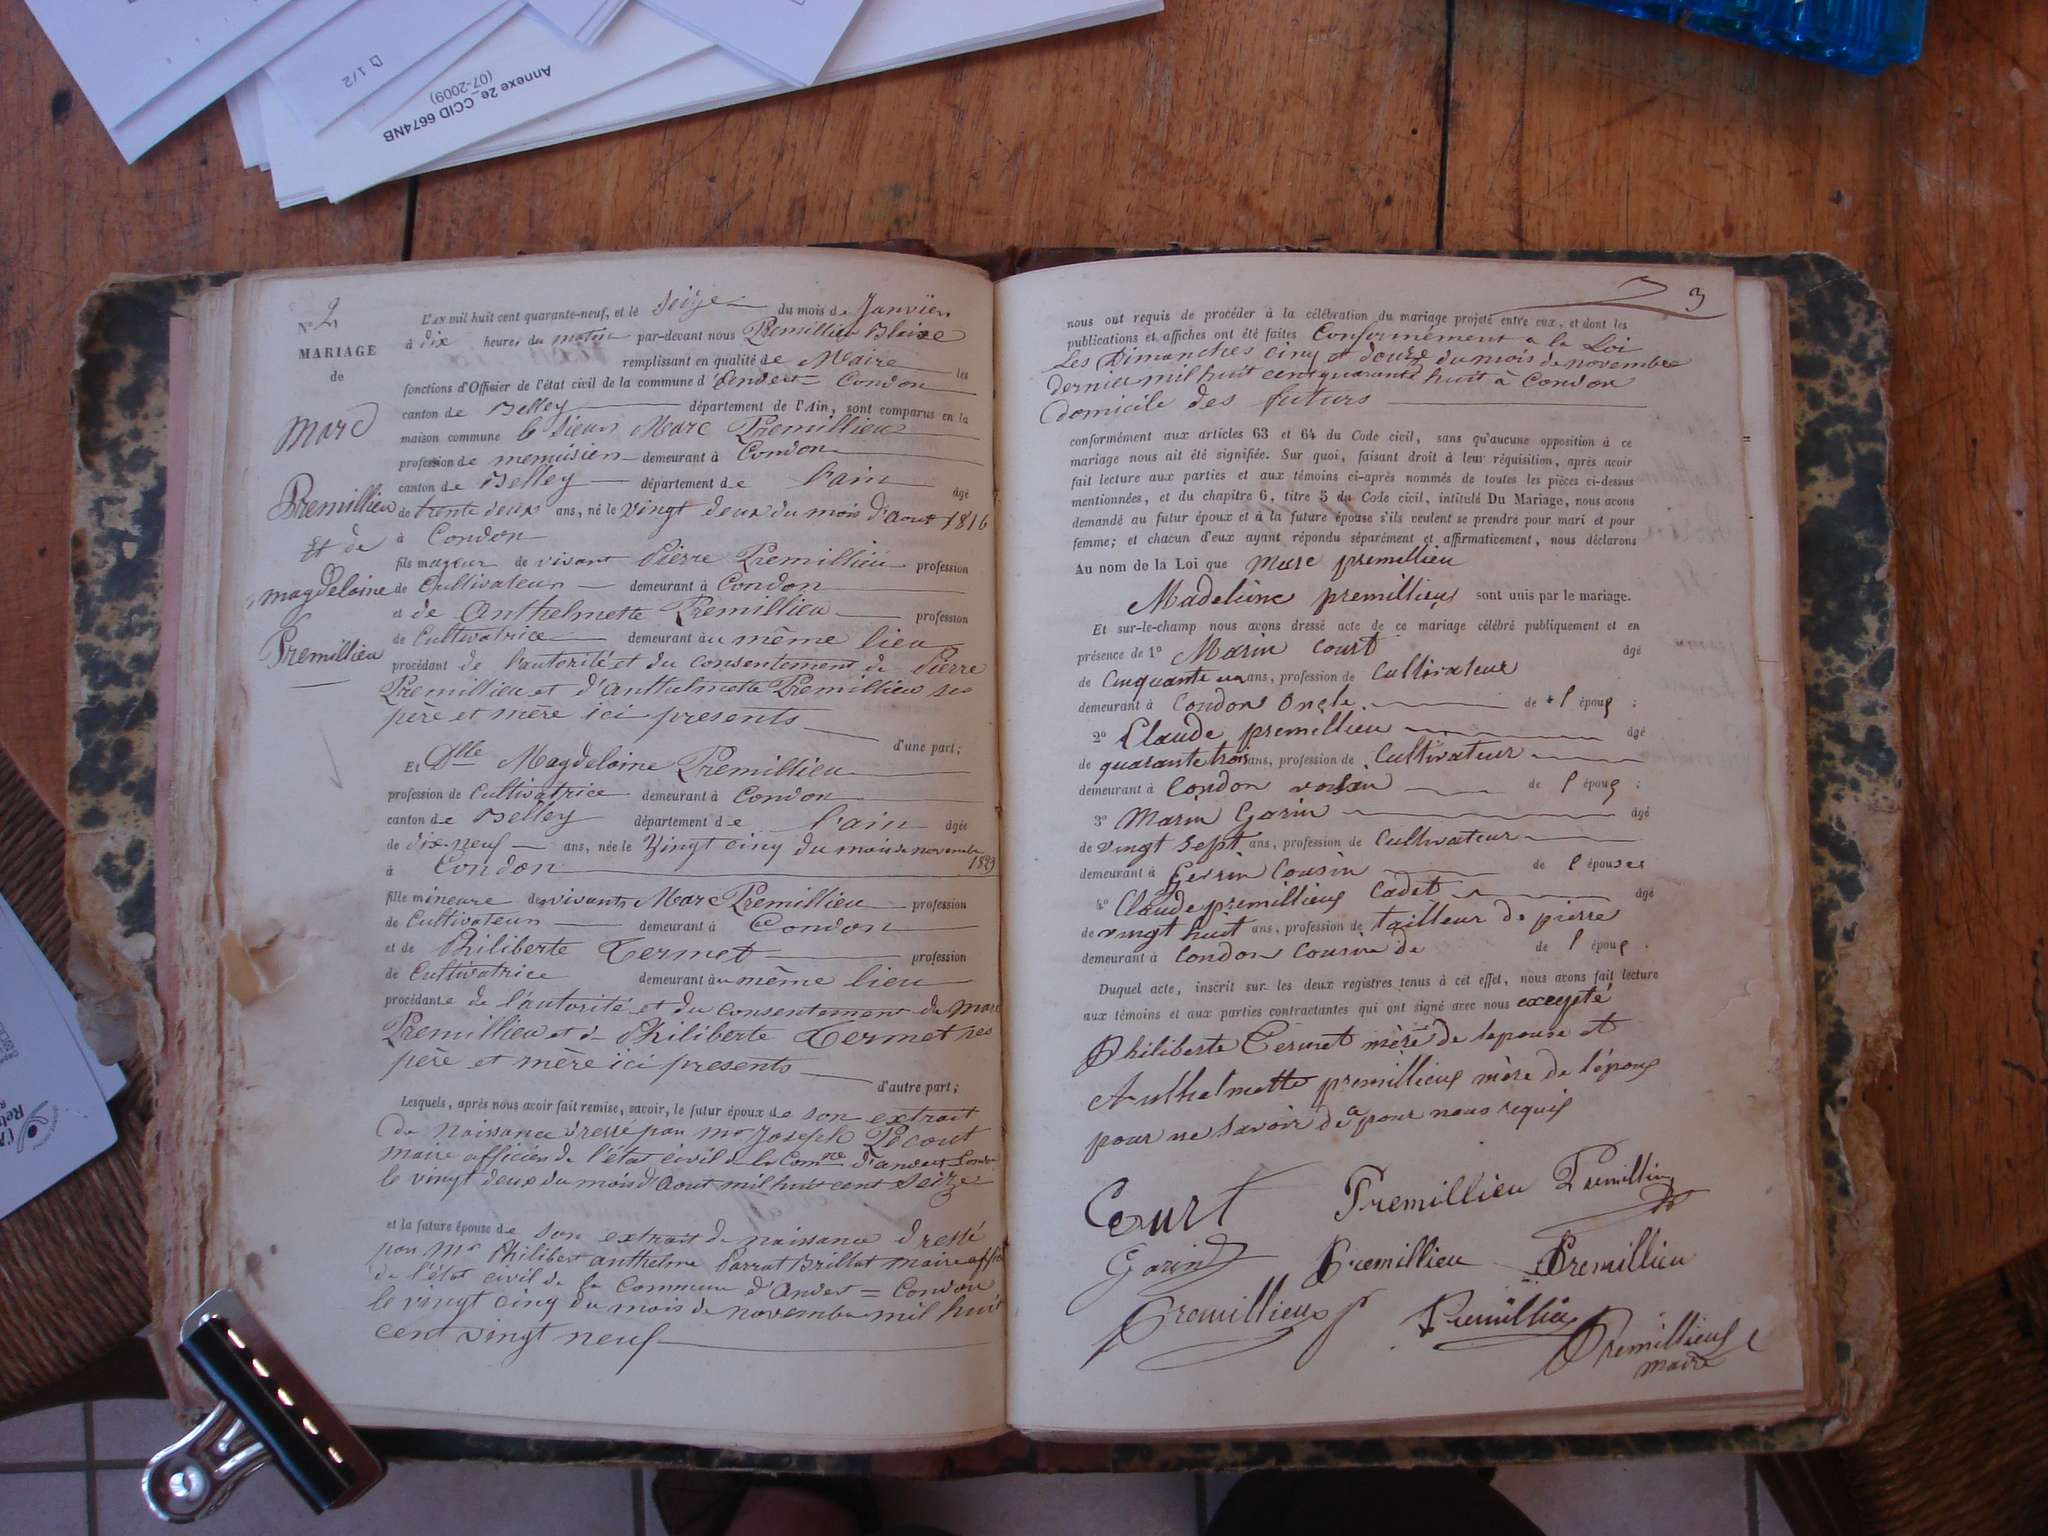 D 1/2
Annexe 2e_CCID 6674NB
(07-2009)
N° 2
MARIAGE
de
Marc
Premillieu
Et de
Magdeloine
Premillieu
L'AN mil huit cent quarante-neuf, et le Seize du mois de Janvier
à dix heures du matin par-devant nous Premillieu Blaise
remplissant en qualité de Maire les
fonctions d'Officier de l'état civil de la commune d'andert = Condon
canton de Belley département de l'Ain, sont comparus en la
maison commune le Sieur Marc Premillieu
profession de menuisier demeurant à Condon
canton de Belley département de l'ain âgé
de trente deux ans, né le vingt deux du mois d'aout 1816
à Condon
fils majeur de vivant Pierre Premillieu profession
de Cultivateur demeurant à Condon
et de Anthelmette Premillieu profession
de Cultivatrice demeurant au même lieu
procédant de l'autorité et du consentement de Pierre
Premillieu et d'anthelmette Premillieu ses
père et mère ici presents
d'une part;
Et Dlle Magdeloine Premillieu
profession de Cultivatrice demeurant à Condon
canton de Belley département de l'ain âgée
de dix-neuf ans, née le Vingt cinq du mois de novembre
à Condon 1829
fille mineure de vivants Marc Premillieu profession
de Cultivateur demeurant à Condon
et de Philiberte Termet profession
de Cultivatrice demeurant au même lieu
procédante de l'autorité et du consentement de Marc
Premillieu et de Philiberte Termet ses
père et mère ici presents
d'autre part;
Lesquels, après nous avoir fait remise, savoir, le futur époux de son extrait
de naissance dressé par mr Joseph Récout
maire officier de l'état civil de la Comne d'andert Condon
le vingt deux du mois d'aout mil huit cent Seize
et la future épouse de son extrait de naissance dressé
par Mr Philibert anthelme Parrat Brillat maire offi
de l'état civil de la Commune d'Andert = Condon
le vingt cinq du mois de novembre mil huit
cent vingt neuf
3
nous ont requis de procéder à la célébration du mariage projeté entre eux, et dont les
publications et affiches ont été faites Conformément a la Loi
Les Dimanches cinq et douze du mois de novembre
dernier mil huit cent quarante huit à Condon
domicile des futurs
conformément aux articles 63 et 64 du Code civil, sans qu'aucune opposition à ce
mariage nous ait été signifiée. Sur quoi, faisant droit à leur réquisition, après avoir
fait lecture aux parties et aux témoins ci-après nommés de toutes les pièces ci-dessus
mentionnées, et du chapitre 6, titre 5 du Code civil, intitulé Du Mariage, nous avons
demandé au futur époux et à la future épouse s'ils veulent se prendre pour mari et pour
femme; et chacun d'eux ayant répondu séparément et affirmativement, nous déclarons
Au nom de la Loi que Marc premillieu
Madeleine premillieux sont unis par le mariage.
Et sur-le-champ nous avons dressé acte de ce mariage célébré publiquement et en
présence de 1° Marin Court âgé
de Cinquante un ans, profession de Cultivateur
demeurant à Condon Oncle de l époux ;
2° Claude premillieu âgé
de quarante trois ans, profession de Cultivateur
demeurant à Condon voisin de l époux ;
3° Marin Garin âgé
de vingt sept ans, profession de Cultivateur
demeurant à Gevrin Cousin de l épouse
4° Claude premillieux Cadet âgé
de vingt huit ans, profession de tailleur de pierre
demeurant à Condon Cousin de de l époux .
Duquel acte, inscrit sur les deux registres tenus à cet effet, nous avons fait lecture
aux témoins et aux parties contractantes qui ont signé avec nous excepté
Philiberte Termet mère de lepouse et
Anthelmette premillieux mère de l'époux
pour ne savoir de ce pour nous requis
Court Premillieu Premillieu
Garin Premillieu Premillieu
Premillieux Premillieu Premillieux
maire